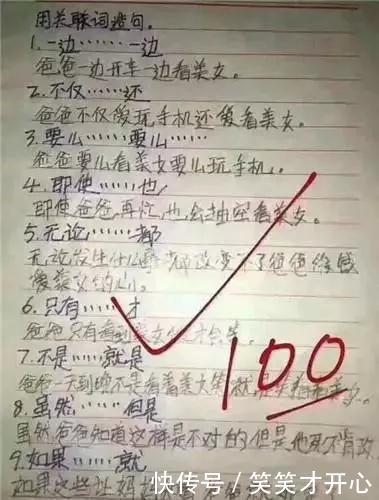 用关联词造句。
1.一边……一边
爸爸一边开车一边看美女。
2.不仅……还
爸爸不仅爱玩手机还爱看美女。
3.要么……要么……
爸爸要么看美女要么玩手机。
4.即使……也
即使爸爸再忙,也会抽空看美女。
5.无论……都
无论发生什么 都改变不了爸爸
爱美女的心。
6.只有……才
爸爸只有看到美女 才会笑。
7.不是……就是
爸爸一天到晚不是看着美女笑就是
8.虽然……但是
虽然爸爸知道这样是不对的,但是他死不
9.如果……就
如果
100
快传号/笑笑才开心